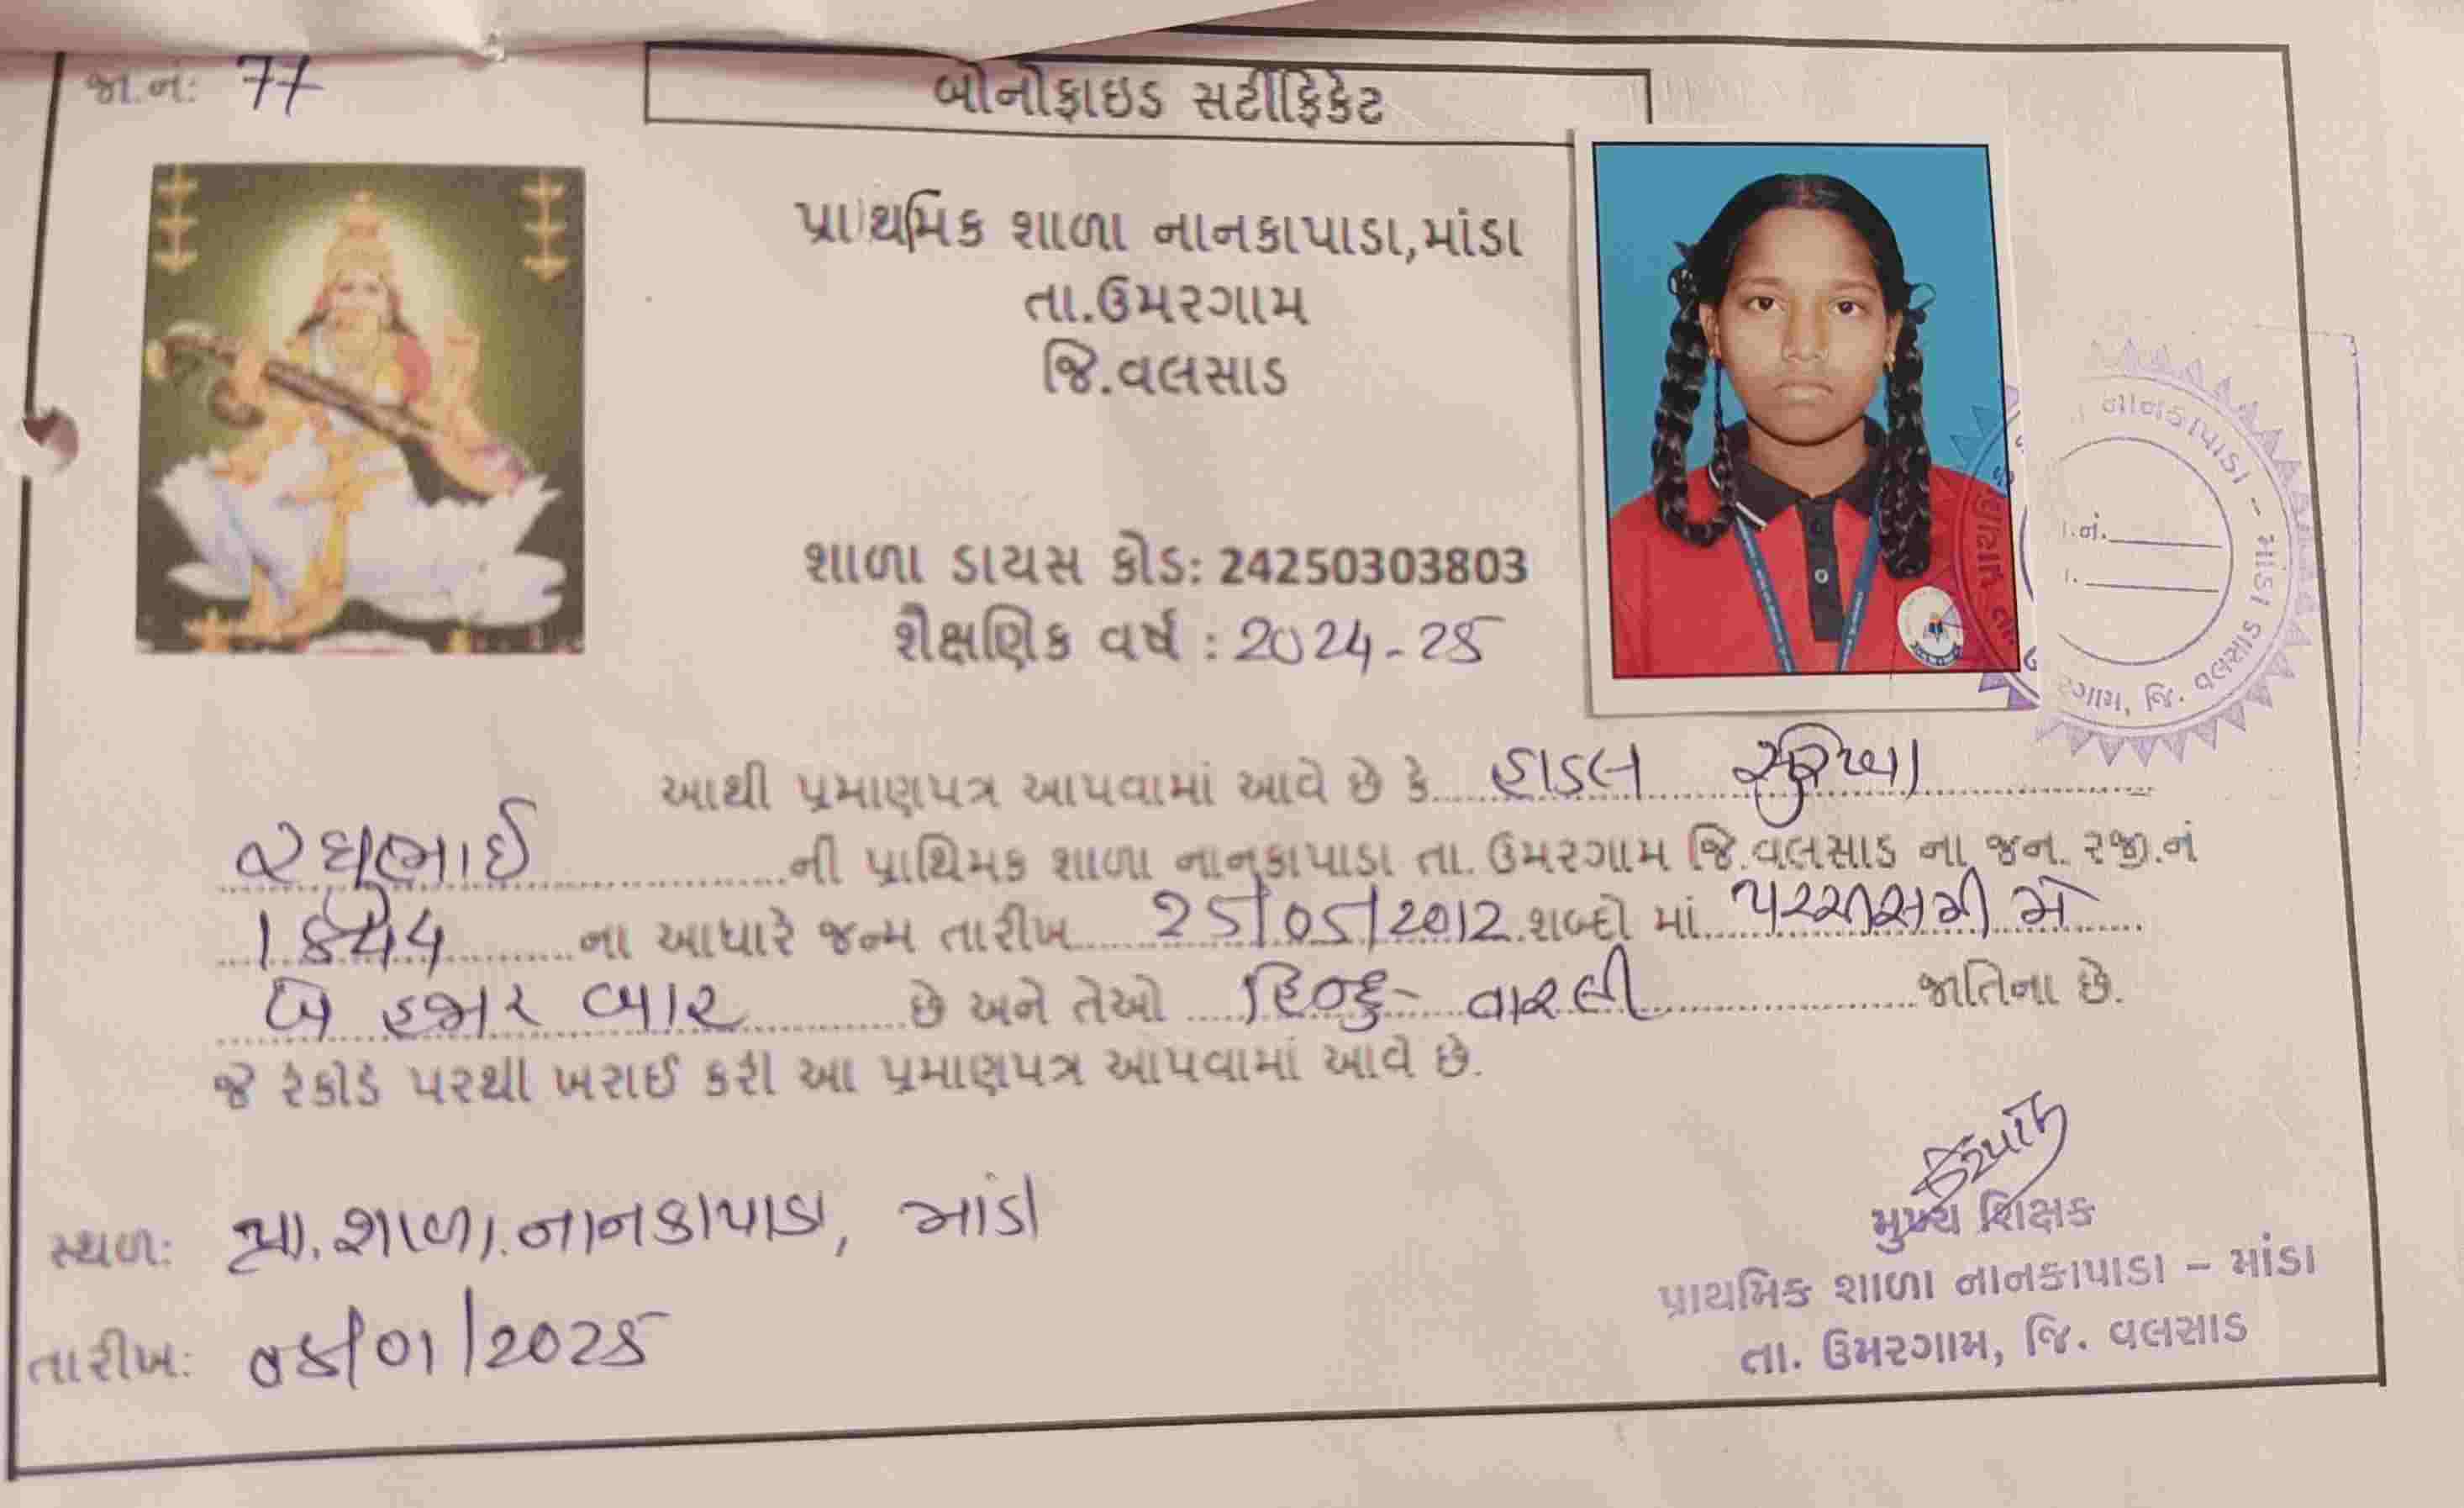 જા.નં: 77
બોનોફાઇડ સર્ટીફિકેટ
પ્રાથમિક શાળા નાનકાપાડા,માંડા
તા.ઉમરગામ
જિ.વલસાડ
શાળા ડાયસ કોડ: 24250303803
શૈક્ષણિક વર્ષ : 2024-25
નાનકાપાડા - માંડા
જિ. વલસાડ
આથી પ્રમાણપત્ર આપવામાં આવે છે કે હાડલ
રઘુભાઈ ની પ્રાથિમક શાળા નાનકાપાડા તા. ઉમરગામ જિ.વલસાડ ના જન. રજી.નં
ના આધારે જન્મ તારીખ 25/05/2012 શબ્દો માં પચ્ચીસમી મે
બે હજાર બાર છે અને તેઓ હિન્દુ- વારલી જાતિના છે.
જે રેકોર્ડ પરથી ખરાઈ કરી આ પ્રમાણપત્ર આપવામાં આવે છે.
મુખ્ય શિક્ષક
સ્થળ: પ્રા.શાળા.નાનકાપાડા, માંડા
પ્રાથમિક શાળા નાનકાપાડા – માંડા
તારીખ: 0૬/01/2025
તા. ઉમરગામ, જિ. વલસાડ